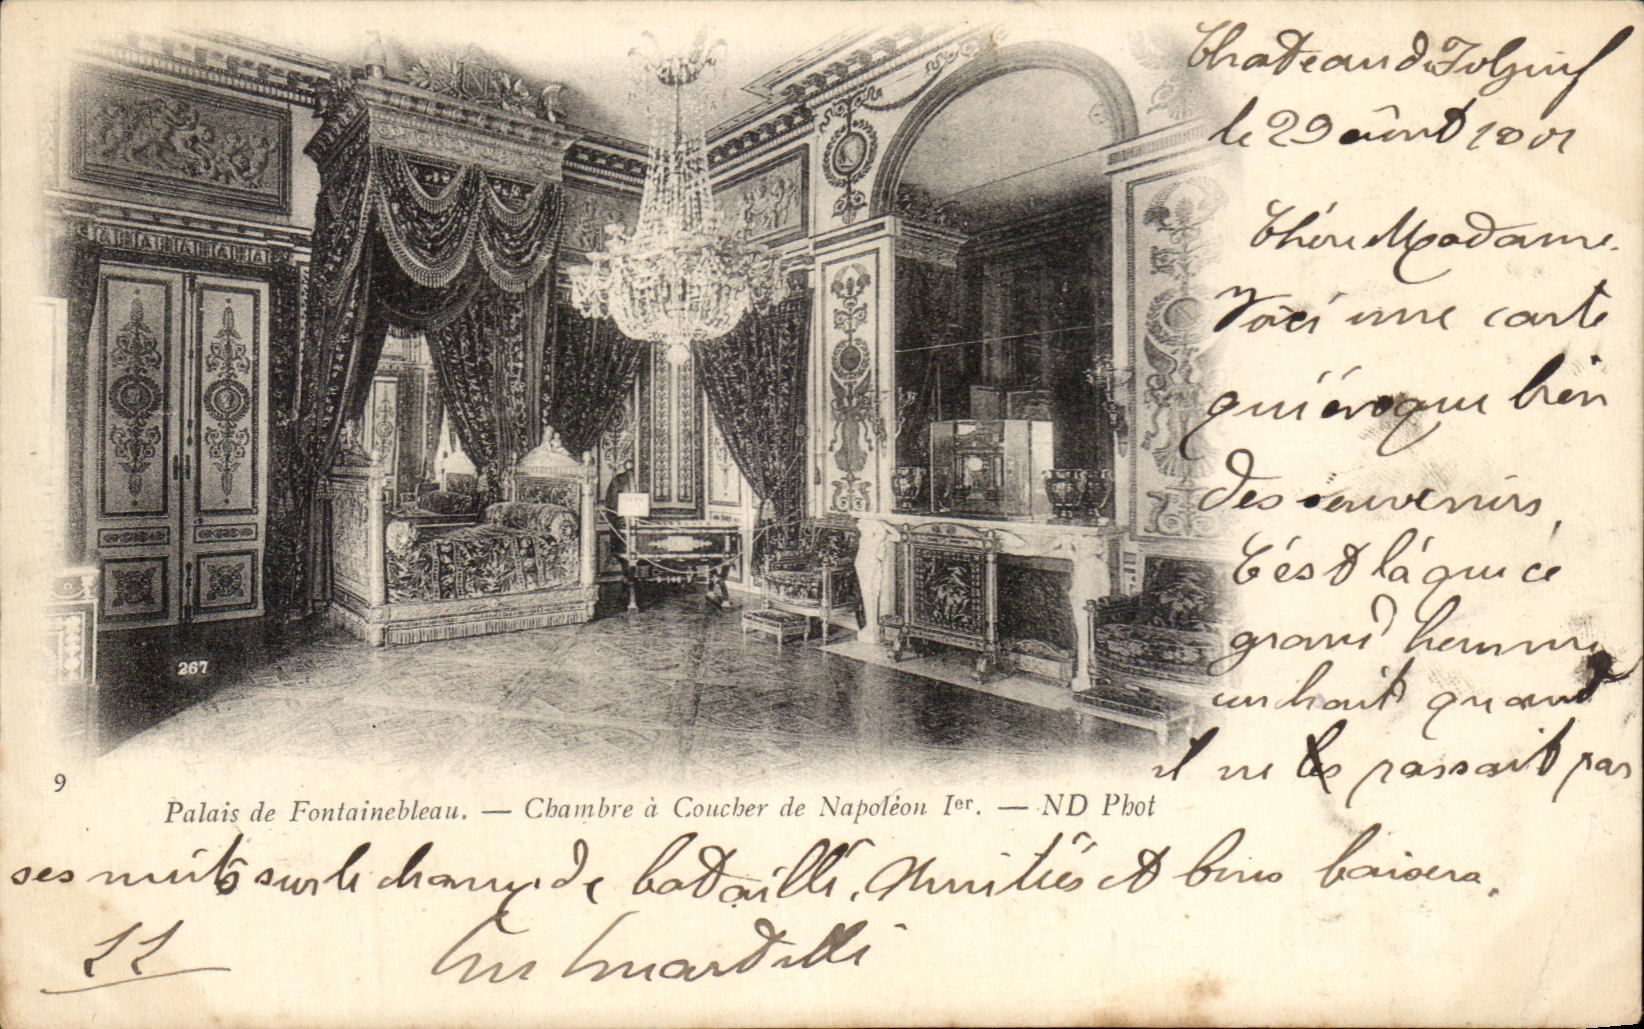 le 29 août 1901
Chère Madame.
Voici une carte
qui évoque bien
des souvenirs,
C'est là que ce
grand homme
quand
il ne passait pas
267
9
Palais de Fontainebleau. — Chambre à Coucher de Napoléon Ier. — ND Phot
ses nuits sur le champ de bataille. Amitiés et bons baisers.